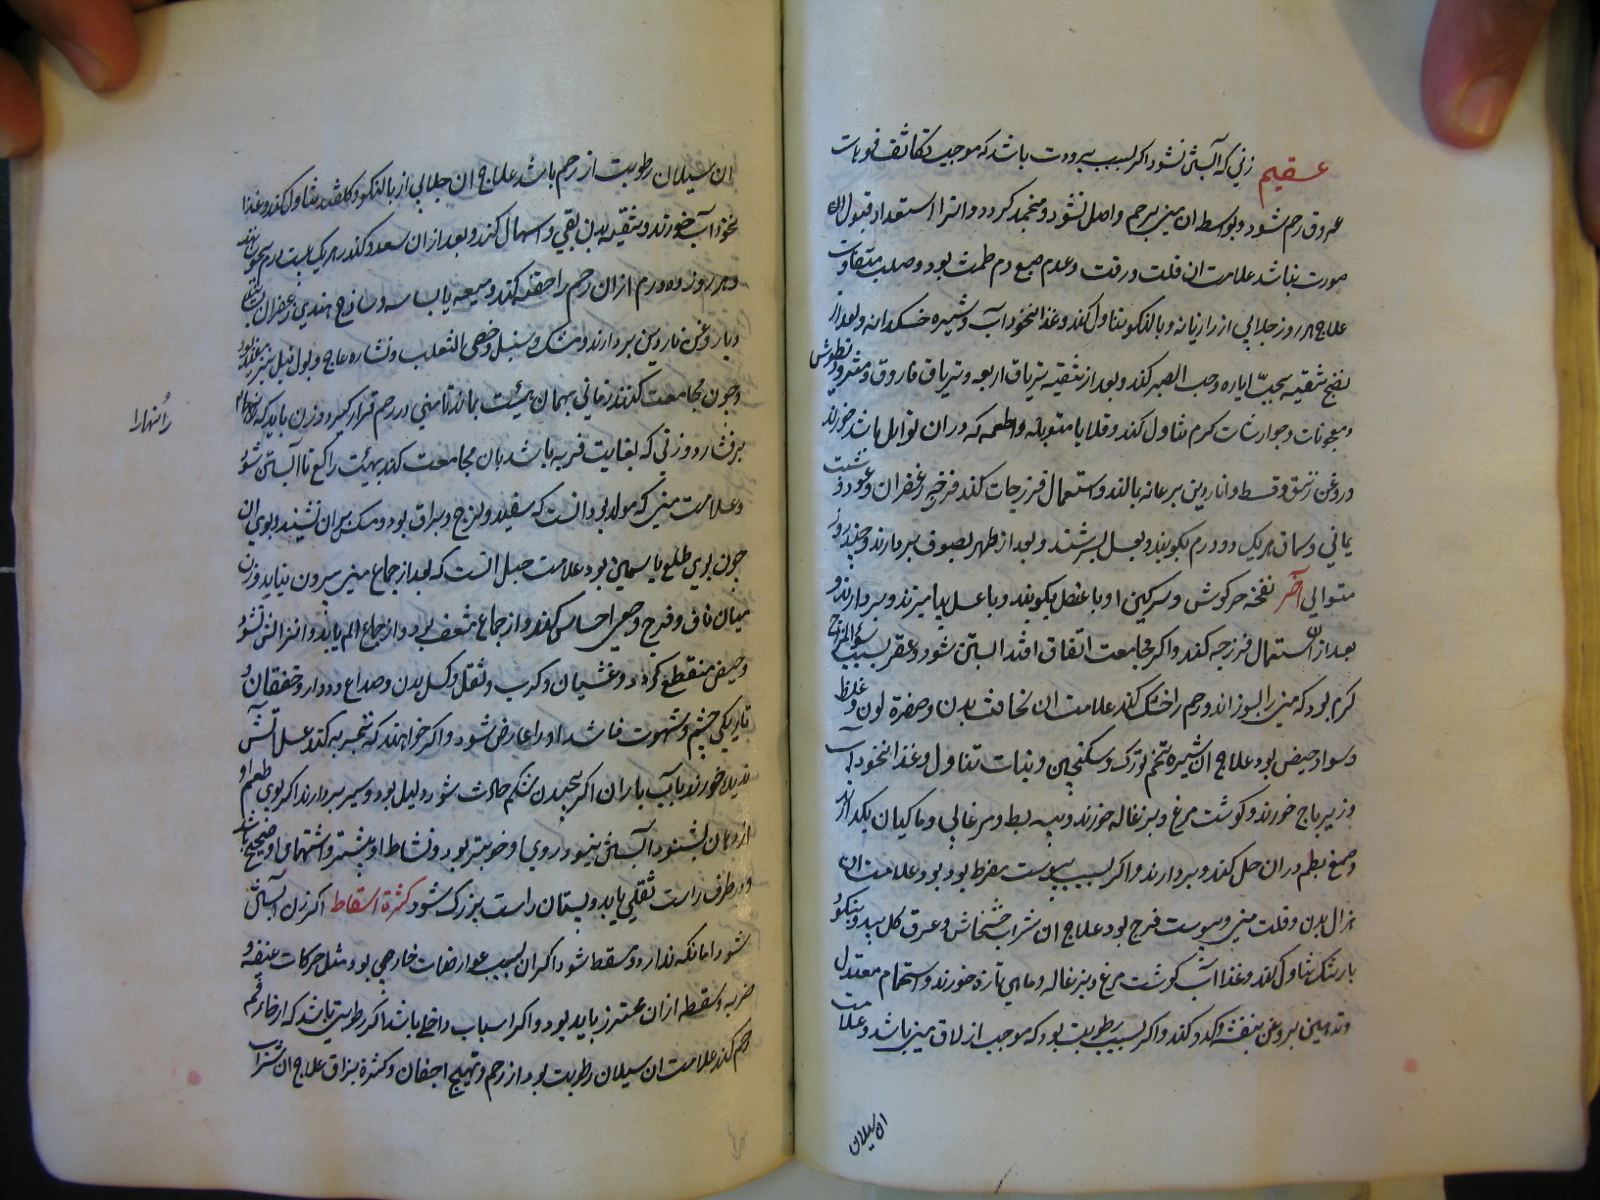 عقیم زنی که آبستن نشود اکر بسبب برودت باشد که موجب تکاثف فوهات
عروق رحم شود و بواسطه ان منی برحم واصل نشود و منجمد کردد و انرا استعداد قبول
صورت نباشد علامت ان قلت و رقت و عدم صبغ دم طمث بود و صلب متفاوت
علاج هر روز جلابی از رازیانه و بالنکو تناول کند و غذا نخود آب و شیره خسکدانه و بعد از
نضج تنقیه بحب ایاره و حب الصبر کند و بعد از تنقیه تریاق اربعه و تریاق فاروق و مثرودیطوس
و معجونات و جوارشات کرم تناول کند و قلایا متوبله و اطعمه که دران توابل باشد خورند
و روغن زنبق و قسط و ناردین بر عانه بمالند و استعمال فرزجات کند زعفران و عود و
یمانی و سماق هریک دو درم بکوبند و بعسل بسرشند و بعد از طهر بصوف بردارند
متوالی آخر نفحه خرکوش و سرکین او با عسل بکوبند و با عسل بیامیزند و بردارند و
بعد از ان استعمال فرزجه کند و اکر مجامعت اتفاق افتد آبستن شود و عقر بسبب سوء المزاج
کرم بود که منی را بسوزاند و رحم را خشک کند علامت ان نحافت بدن و صفرة لون و غلظ
و سواد حیض بود علاج ان شیره تخم تورک و سکنجبین و نبات تناول و غذا نخود آب
و زیرباج خورند و کوشت مرغ و بزغاله خورند و پیه بط و مرغابی و ماکیان بکدازند
و صمغ بطم دران حل کند و بردارند و اکر بسبب یبوست مفرط بود بود علامت ان
هزال بدن و قلت منی و یبوست فرج بود علاج ان شراب خشخاش و عرق کل بید و نیلوفر
تناول کند و غذا آب کوشت مرغ و بزغاله و ماهی تازه خورند و استحمام معتدل
و تدهین بروغن بنفشه و کدو کند و اکر بسبب رطوبت بود که موجب ازلاق منی باشد و علامت
ان سیلان
ان سیلان رطوبت از رحم باشد علاج ان جلابی از بالنکو و کلقند تناول کند و غذا
نخود آب خورند و تنقیه بدن بقی و اسهال کند و بعد از ان سعد و کندر هریک
و هر روز ده درم از ان رحم را حقنه کند و میعه یابسه و ساذج هندی زعفران
و با روغن ناردین بردارند و مشک و سنبل و خصی الثعلب و نشاره عاج و بول فیل نیز
و چون مجامعت کنند زمانی بهمان هیئت بماند تا منی در رحم قرار کیرد و زن باید که
رانها را
برفشارد و زنی که بغایت فربه باشد بان مجامعت کند بهیئت راکع تا آبستن شود
و علامت منی که مولد بود انست که سفید و لزج و براق بود و مکس بران نشیند و بوی ان
چون بوی طلع یا یاسمین بود علامت حبل انست که بعد از جماع منی بیرون نیاید و زن
میان ناف و فرج وجعی احساس کند و از جماع متنفر بود و از جماع الم یابد و انزالش نشود
و حیض منقطع کردد و غشیان و کرب و ثقل و کسل بدن و صداع و دوار و خفقان و
تاریکی چشم و شهوت فاسد او را عارض شود و اکر خواهند که تجربه کند عسل ناآتش
ندیده خورند با آب باران اکر پیچیدن شکم حادث شود دلیل بود و سیر بردارند اکر بوی طعم او
از دهان بشنود آبستن نبود و روی او خوبتر بود و نشاط او بیشتر و اشتهای او صحیح باشد
و در طرف راست ثقلی یابد و پستان راست بزرک شود کثرة اسقاط اکر زن آبستن
شود اما نکه ندارد و سقط شود اکر ان بسبب عوارضات خارجی بود مثل حرکات عنیفه و
ضربه و سقطه از ان محترز باید بود و اکر اسباب داخلی باشد اکر رطوبتی باشد که ارخاء فم
رحم کند علامت ان سیلان رطوبت بود از رحم و تهیج اجفان و کثرة بزاق علاج ان شراب